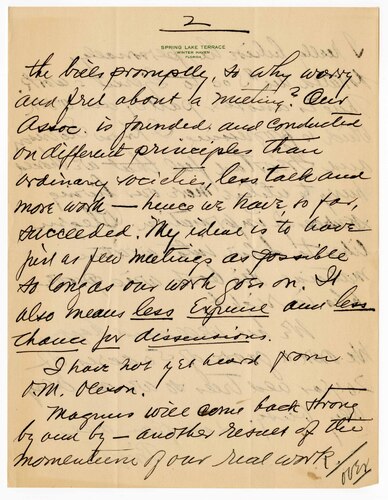 2
SPRING LAKE TERRACE
WINTER HAVEN
FLORIDA
the bills promptly, so why worry
and fret about a meeting? Our
Assoc. is founded and conducted
on different principles than
ordinary societies, less talk and
more work — hence we have so far,
succeeded. My ideal is to have
just as few meetings as possible
so long as our work goes on. It
also means less Expense and less
chance for dissensions.
I have not yet heard from
O.M. Olexon.
Magnus will come back strong
by and by — another result of the
momentum of our real work.
over